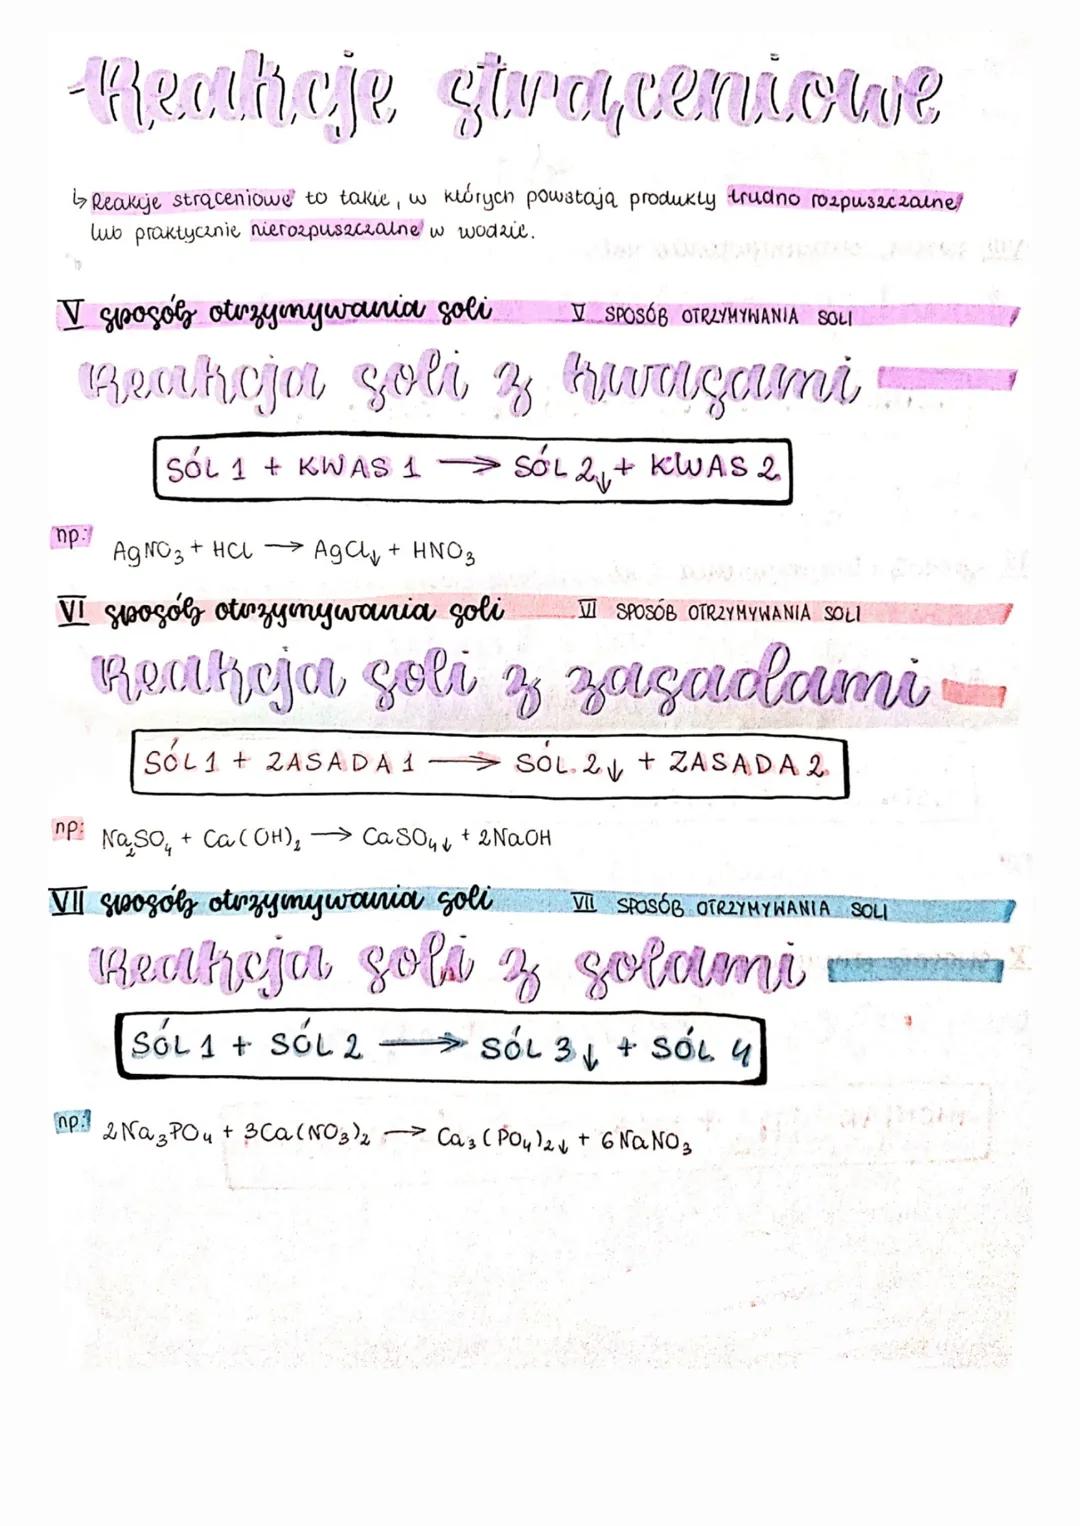 Reakcje strąceniowe
↳ Reakcje strąceniowe to takie, w których powstają produkty trudno rozpuszczalne
lub praktycznie nierozpuszczalne w wodzie.
V sposób otrzymywania soli V SPOSÓB OTRZYMYWANIA SOLI
Reakcja soli z kwasami
SÓL 1 + KWAS 1 → SÓL 2↓ + KWAS 2
np: AgNO₃ + HCl → AgCl↓ + HNO₃
VI sposób otrzymywania soli VI SPOSÓB OTRZYMYWANIA SOLI
Reakcja soli z zasadami
SÓL 1 + ZASADA 1 → SÓL 2↓ + ZASADA 2
np: Na₂SO₄ + Ca(OH)₂ → CaSO₄↓ + 2NaOH
VII sposób otrzymywania soli VII SPOSÓB OTRZYMYWANIA SOLI
Reakcja soli z solami
SÓL 1 + SÓL 2 → SÓL 3↓ + SÓL 4
np: 2Na₃PO₄ + 3Ca(NO₃)₂ → Ca₃(PO₄)₂↓ + 6NaNO₃